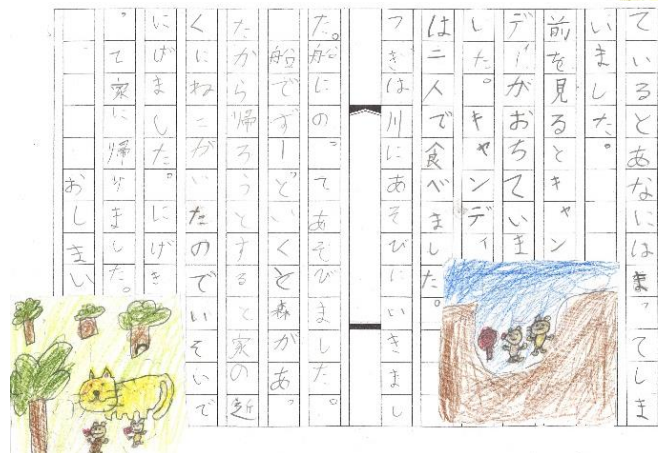 ているとあなにはまってしま
いました。
前を見るとキャン
ディがおちていま
した。キャンディ
は二人で食べました。
つぎは川にあそびにいきまし
た。船にのってあそびました。
船でずーといくと森があっ
たから帰ろうとすると家の近
くにねこがいたのでいそいで
にげました。にげき
って家に帰りました。
おしまい